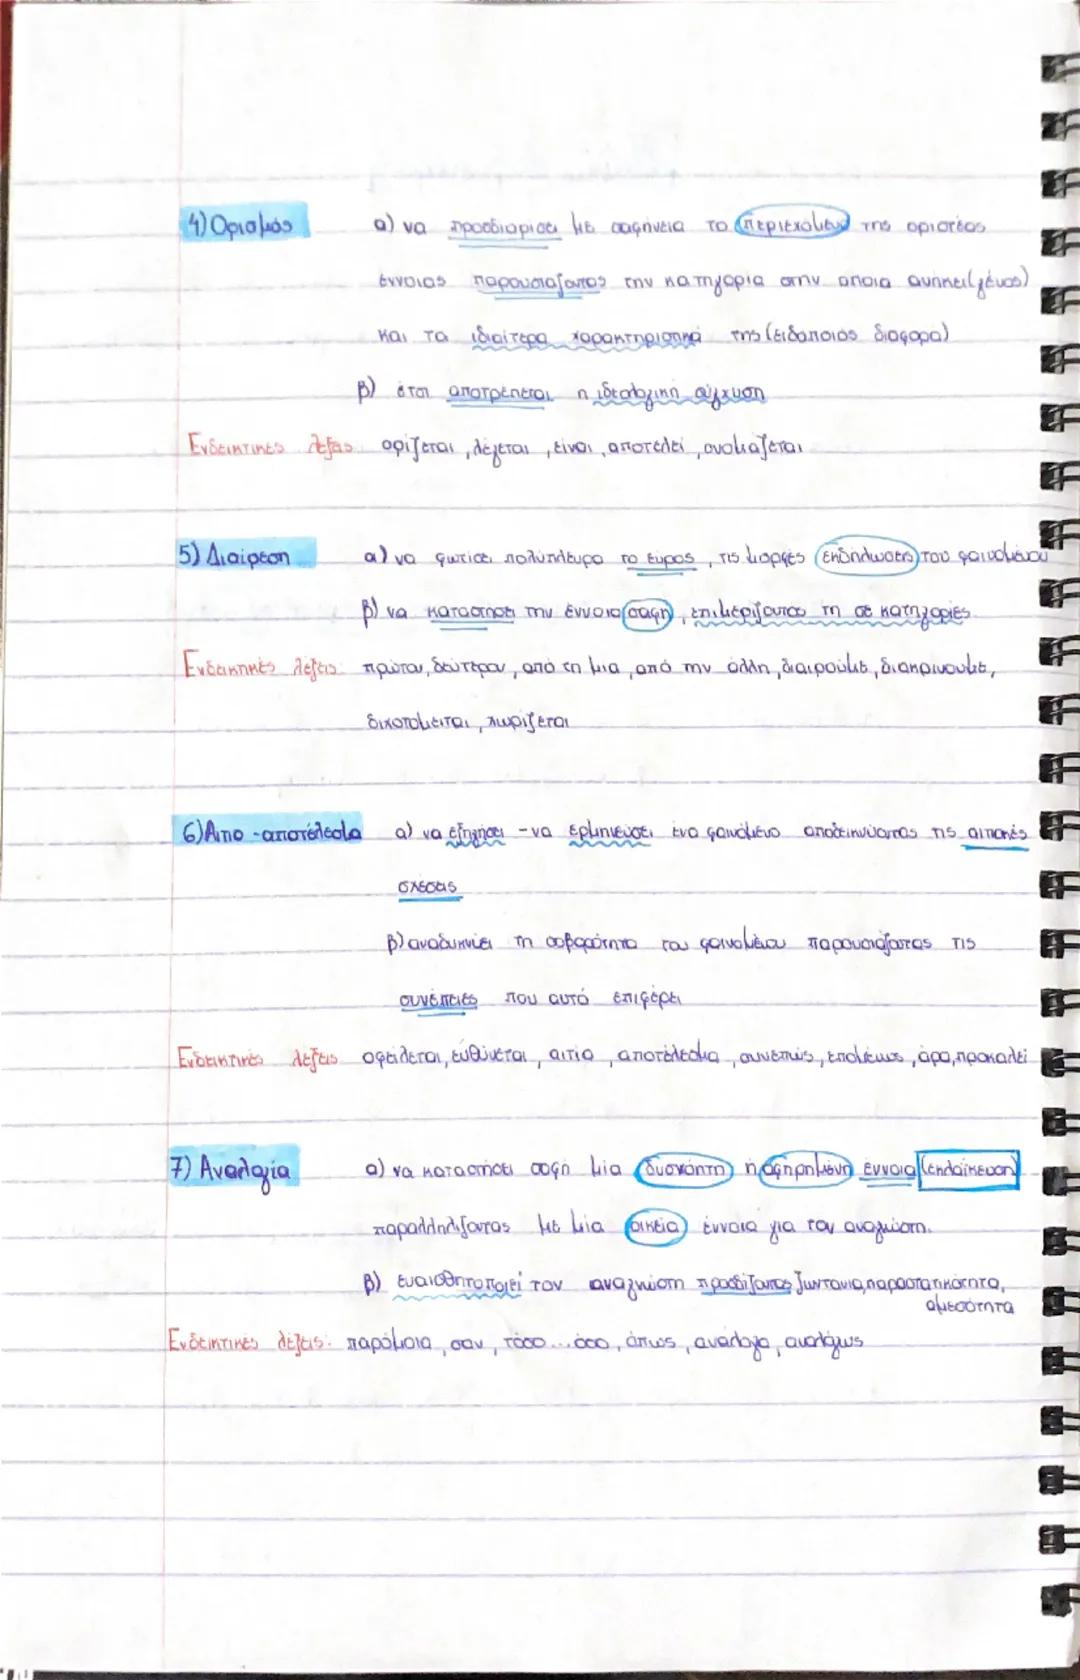 4) Ορισμός α) να προσδιορίσει με σαφήνεια το περιεχόμενο της οριστέας
έννοιας παρουσιάζοντας την κατηγορία στην οποία ανήκει (γένος)
και τα ιδιαίτερα χαρακτηριστικά της (ειδοποιός διαφορά)
β) έτσι αποτρέπεται η ιδεολογική σύγχυση
Ενδεικτικές λέξεις: ορίζεται, λέγεται, είναι, αποτελεί, ονομάζεται
5) Διαίρεση α) να φωτίσει πολύπλευρα το εύρος, τις μορφές (εκδηλώσεις) του φαινομένου
β) να καταστήσει την έννοια σαφή, επιμερίζοντας τη σε κατηγορίες
Ενδεικτικές λέξεις: πρώτον, δεύτερον, από τη μια, από την άλλη, διαιρούμε, διακρίνουμε,
διχοτομείται, χωρίζεται
6) Αιτιο - αποτέλεσμα α) να εξηγήσει - να ερμηνεύσει ένα φαινόμενο αποδεικνύοντας τις αιτιακές
σχέσεις
β) αναδεικνύει τη σοβαρότητα του φαινομένου παρουσιάζοντας τις
συνέπειες που αυτό επιφέρει
Ενδεικτικές λέξεις οφείλεται, ευθύνεται, αιτία, αποτέλεσμα, συνεπώς, επομένως, άρα, προκαλεί
7) Αναλογία α) να καταστήσει σαφή μια δυσνόητη ή αφηρημένη έννοια (εκλαΐκευση)
παραλληλίζοντας με μια οικεία έννοια για τον αναγνώστη.
β) ευαισθητοποιεί τον αναγνώστη προσδίδοντας ζωντάνια, παραστατικότητα,
αμεσότητα
Ενδεικτικές λέξεις: παρόμοια, σαν, τόσο...όσο, όπως, ανάλογα, αναλόγως